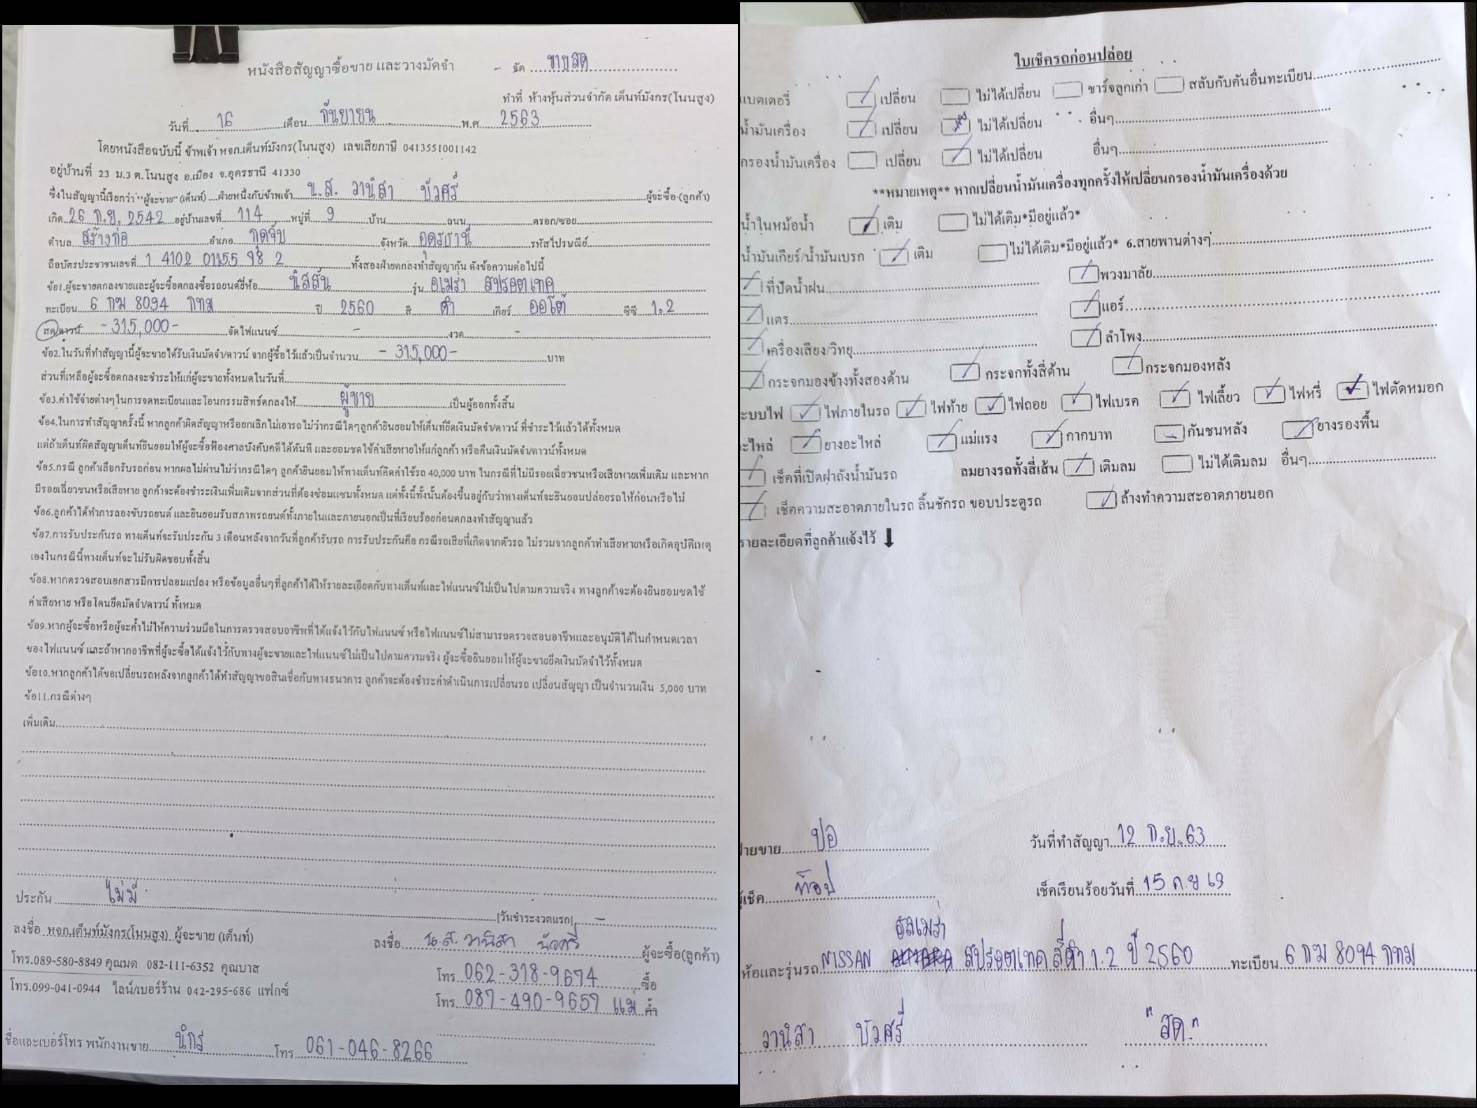 หนังสือสัญญาซื้อขาย และวางมัดจำ - รัด ขายสด
ทำที่ ห้างหุ้นส่วนจำกัด เต็นท์มังกร(โนนสูง)
วันที่ 16 เดือน กันยายน พ.ศ. 2563
โดยหนังสือฉบับนี้ ข้าพเจ้า หจก.เต็นท์มังกร(โนนสูง) เลขเสียภาษี 0413551001142
อยู่บ้านที่ 23 ม.3 ต.โนนสูง อ.เมือง จ.อุดรธานี 41330
ซึ่งในสัญญานี้เรียกว่า "ผู้จะขาย"(เต็นท์) ฝ่ายหนึ่งกับข้าพเจ้า น.ส. วานิสา บัวศรี ผู้จะซื้อ(ลูกค้า)
เกิด 26 ก.ย. 2542 อยู่บ้านเลขที่ 114 หมู่ที่ 9 บ้าน ถนน ตรอก/ซอย
ตำบล สร้างก่อ อำเภอ กุดจับ จังหวัด อุดรธานี รหัสไปรษณีย์
ถือบัตรประชาชนเลขที่ 1 4102 01155 98 2 ทั้งสองฝ่ายตกลงทำสัญญากัน ดังข้อความต่อไปนี้
ข้อ1.ผู้จะขายตกลงขายและผู้จะซื้อตกลงซื้อรถยนต์ยี่ห้อ นิสสัน รุ่น อเมร่า สปรอตเทค
ทะเบียน 6 กม 8094 กทม ปี 2560 สี ดำ เกียร์ ออโต้ ซีซี 1,2
สด/ดาวน์ -315,000- จัดไฟแนนซ์ - งวด -
ข้อ2.ในวันที่ทำสัญญานี้ผู้จะขายได้รับเงินมัดจำ/ดาวน์ จากผู้ซื้อไว้แล้วเป็นจำนวน -315,000- บาท
ส่วนที่เหลือผู้จะซื้อตกลงจะชำระให้แก่ผู้จะขายทั้งหมดในวันที่
ข้อ3.ค่าใช้จ่ายต่างๆในการจดทะเบียนและโอนกรรมสิทธ์ตกลงให้ ผู้ขาย เป็นผู้ออกทั้งสิ้น
ข้อ4.ในการทำสัญญาครั้งนี้ หากลูกค้าผิดสัญญาหรือยกเลิกไม่เอารถ ไม่ว่ากรณีใดๆลูกค้ายินยอมให้เต็นท์ยึดเงินมัดจำ/ดาวน์ ที่ชำระไว้แล้วได้ทั้งหมด
แต่ถ้าเต็นท์ผิดสัญญาเต็นท์ยินยอมให้ผู้จะซื้อฟ้องศาลบังคับคดีได้ทันที และยอมชดใช้ค่าเสียหายให้แก่ลูกค้า หรือคืนเงินมัดจำ/ดาวน์ทั้งหมด
ข้อ5.กรณี ลูกค้าเลือกรับรถก่อน หากผลไม่ผ่านไม่ว่ากรณีใดๆ ลูกค้ายินยอมให้ทางเต็นท์คิดค่าใช้รถ 40,000 บาท ในกรณีที่ไม่มีรอยเฉี่ยวชนหรือเสียหายเพิ่มเติม และหาก
มีรอยเฉี่ยวชนหรือเสียหาย ลูกค้าจะต้องชำระเงินเพิ่มเติมจากส่วนที่ต้องซ่อมแซมทั้งหมด แต่ทั้งนี้ทั้งนั้นต้องขึ้นอยู่กับว่าทางเต็นท์จะยินยอมปล่อยรถให้ก่อนหรือไม่
ข้อ6.ลูกค้าได้ทำการลองขับรถยนต์ และยินยอมรับสภาพรถยนต์ทั้งภายในและภายนอกเป็นที่เรียบร้อยก่อนตกลงทำสัญญาแล้ว
ข้อ7.การรับประกันรถ ทางเต็นท์จะรับประกัน 3 เดือนหลังจากวันที่ลูกค้ารับรถ การรับประกันคือ กรณีรถเสียที่เกิดจากตัวรถ ไม่รวมจากลูกค้าทำเสียหายหรือเกิดอุบัติเหตุ
เองในกรณีนี้ทางเต็นท์จะไม่รับผิดชอบทั้งสิ้น
ข้อ8.หากตรวจสอบเอกสารมีการปลอมแปลง หรือข้อมูลอื่นๆที่ลูกค้าได้ให้รายละเอียดกับทางเต็นท์และไฟแนนซ์ไม่เป็นไปตามความจริง ทางลูกค้าจะต้องยินยอมชดใช้
ค่าเสียหาย หรือโดนยึดมัดจำ/ดาวน์ ทั้งหมด
ข้อ9.หากผู้จะซื้อหรือผู้จะค้ำไม่ให้ความร่วมมือในการตรวจสอบอาชีพที่ได้แจ้งไว้กับไฟแนนซ์ หรือไฟแนนซ์ไม่สามารถตรวจสอบอาชีพและอนุมัติได้ในกำหนดเวลา
ของไฟแนนซ์ และถ้าหากอาชีพที่ผู้จะซื้อได้แจ้งไว้กับทางผู้จะขายและไฟแนนซ์ไม่เป็นไปตามความจริง ผู้จะซื้อยินยอมให้ผู้จะขายยึดเงินมัดจำไว้ทั้งหมด
ข้อ10.หากลูกค้าได้ขอเปลี่ยนรถหลังจากลูกค้าได้ทำสัญญาขอสินเชื่อกับทางธนาคาร ลูกค้าจะต้องชำระค่าดำเนินการเปลี่ยนรถ เปลี่ยนสัญญา เป็นจำนวนเงิน 5,000 บาท
ข้อ11.กรณีต่างๆ
เพิ่มเติม
ประกัน ไม่มี (วันชำระงวดแรก) -
ลงชื่อ หจก.เต็นท์มังกร(โนนสูง) ผู้จะขาย (เต็นท์) ลงชื่อ น.ส. วานิสา บัวศรี ผู้จะซื้อ(ลูกค้า)
โทร.089-580-8849 คุณมด 082-111-6352 คุณบาส โทร. 062-318-9674 ซื้อ
โทร.099-041-0944 ไลน์/เบอร์ร้าน 042-295-686 แฟกซ์ โทร. 087-490-9657 แม่ ค้ำ
ชื่อและเบอร์โทร พนักงานขาย นักร์ โทร 061-046-8266
ใบเช็ครถก่อนปล่อย
แบตเตอรี่ เปลี่ยน ไม่ได้เปลี่ยน ชาร์จลูกเก่า สลับกับคันอื่นทะเบียน
น้ำมันเครื่อง เปลี่ยน ไม่ได้เปลี่ยน อื่นๆ
กรองน้ำมันเครื่อง เปลี่ยน ไม่ได้เปลี่ยน อื่นๆ
**หมายเหตุ** หากเปลี่ยนน้ำมันเครื่องทุกครั้งให้เปลี่ยนกรองน้ำมันเครื่องด้วย
น้ำในหม้อน้ำ เติม ไม่ได้เติม*มีอยู่แล้ว*
น้ำมันเกียร์/น้ำมันเบรค เติม ไม่ได้เติม*มีอยู่แล้ว* 6.สายพานต่างๆ
ที่ปัดน้ำฝน พวงมาลัย
แตร แอร์
เครื่องเสียง/วิทยุ ลำโพง
กระจกมองข้างทั้งสองด้าน กระจกทั้งสี่ด้าน กระจกมองหลัง
ระบบไฟ ไฟภายในรถ ไฟท้าย ไฟถอย ไฟเบรค ไฟเลี้ยว ไฟหรี่ ไฟตัดหมอก
อะไหล่ ยางอะไหล่ แม่แรง กากบาท กันชนหลัง ยางรองพื้น
เช็คที่เปิดฝาถังน้ำมันรถ ลมยางรถทั้งสี่เส้น เติมลม ไม่ได้เติมลม อื่นๆ
เช็คความสะอาดภายในรถ ลิ้นชักรถ ขอบประตูรถ ล้างทำความสะอาดภายนอก
รายละเอียดที่ลูกค้าแจ้งไว้
ฝ่ายขาย ปอ วันที่ทำสัญญา 12 ก.ย. 63
ผู้เช็ค ท๊อป เช็คเรียบร้อยวันที่ 15 ก.ย 63
อัลเมร่า
ยี่ห้อและรุ่นรถ NISSAN สปรอตเทค สีดำ 1.2 ปี 2560 ทะเบียน 6 กม 8094 กทม
วานิสา บัวศรี "สด."